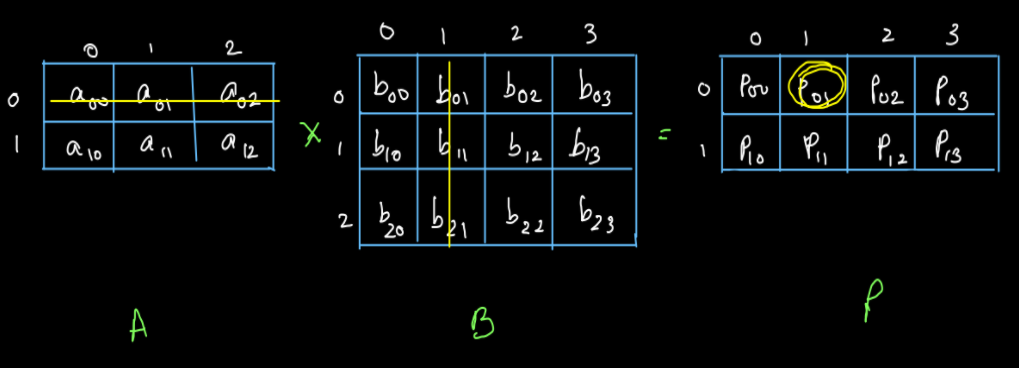 0 1 2
0 a00 a01 a02
1 a10 a11 a12
A
×
0 1 2 3
0 b00 b01 b02 b03
1 b10 b11 b12 b13
2 b20 b21 b22 b23
B
=
0 1 2 3
0 P00 P01 P02 P03
1 P10 P11 P12 P13
P